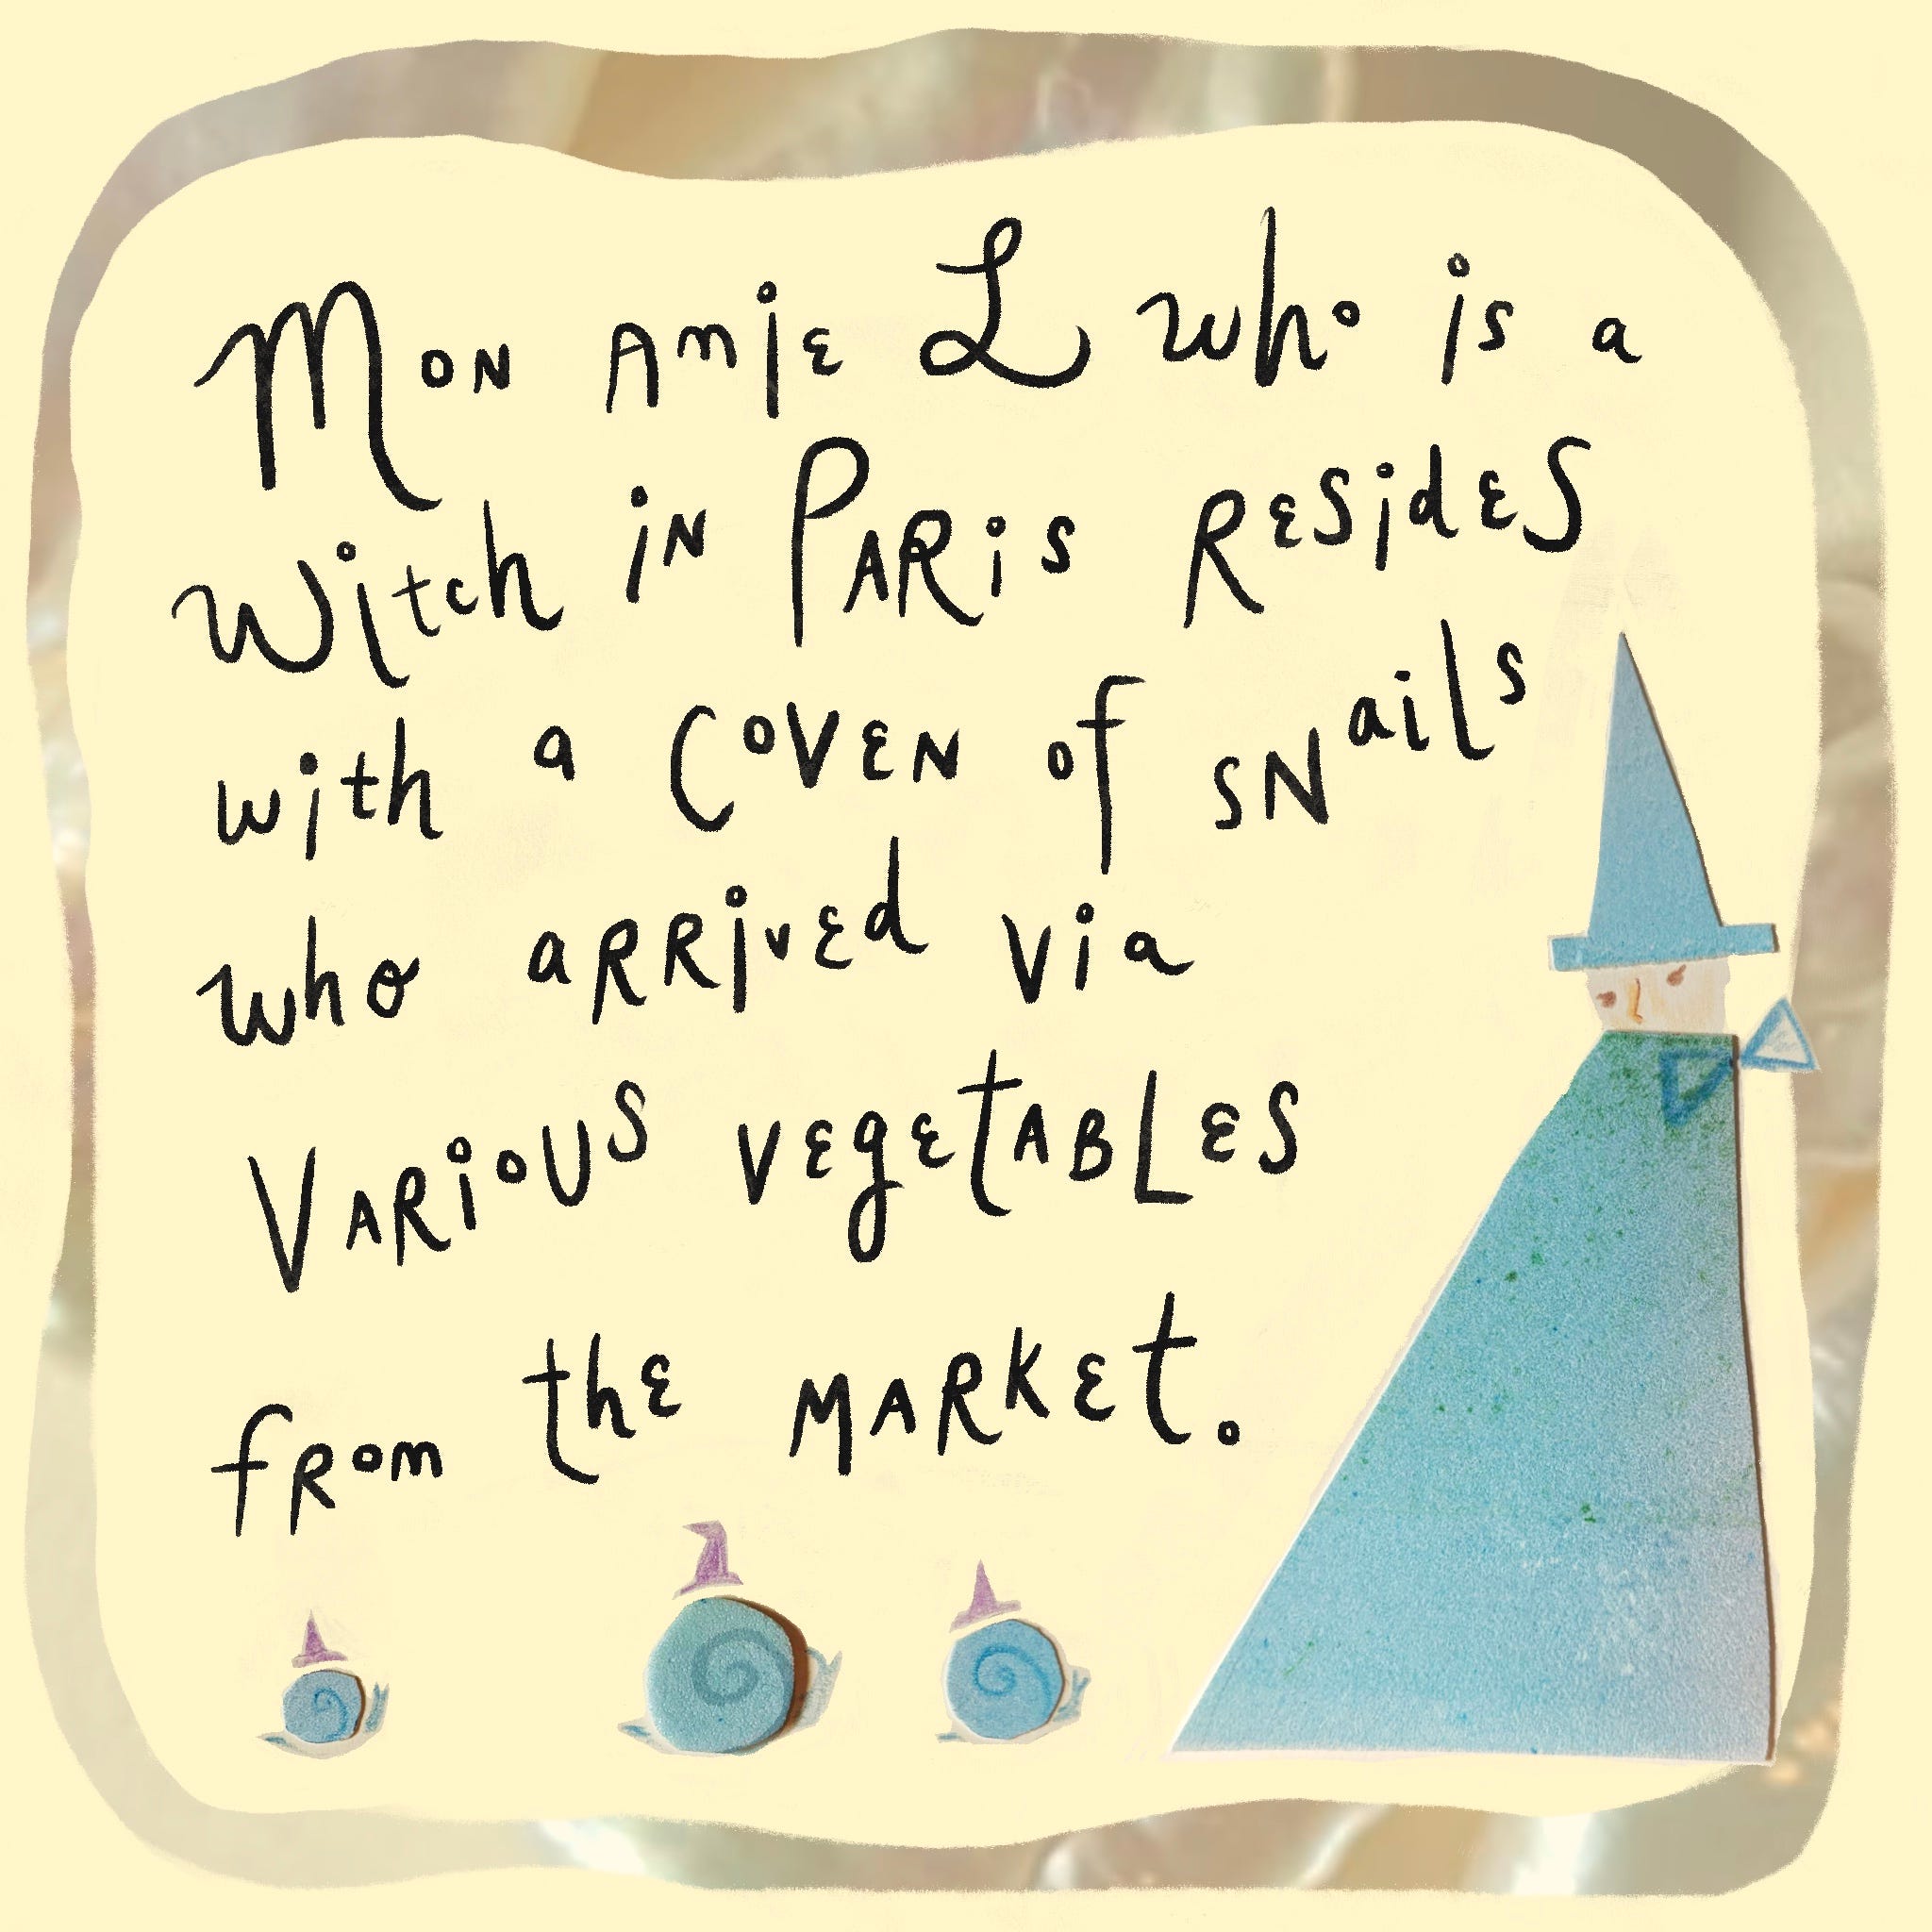 Mon amie L who is a
witch in Paris resides
with a coven of snails
who arrived via
various vegetables
from the market.